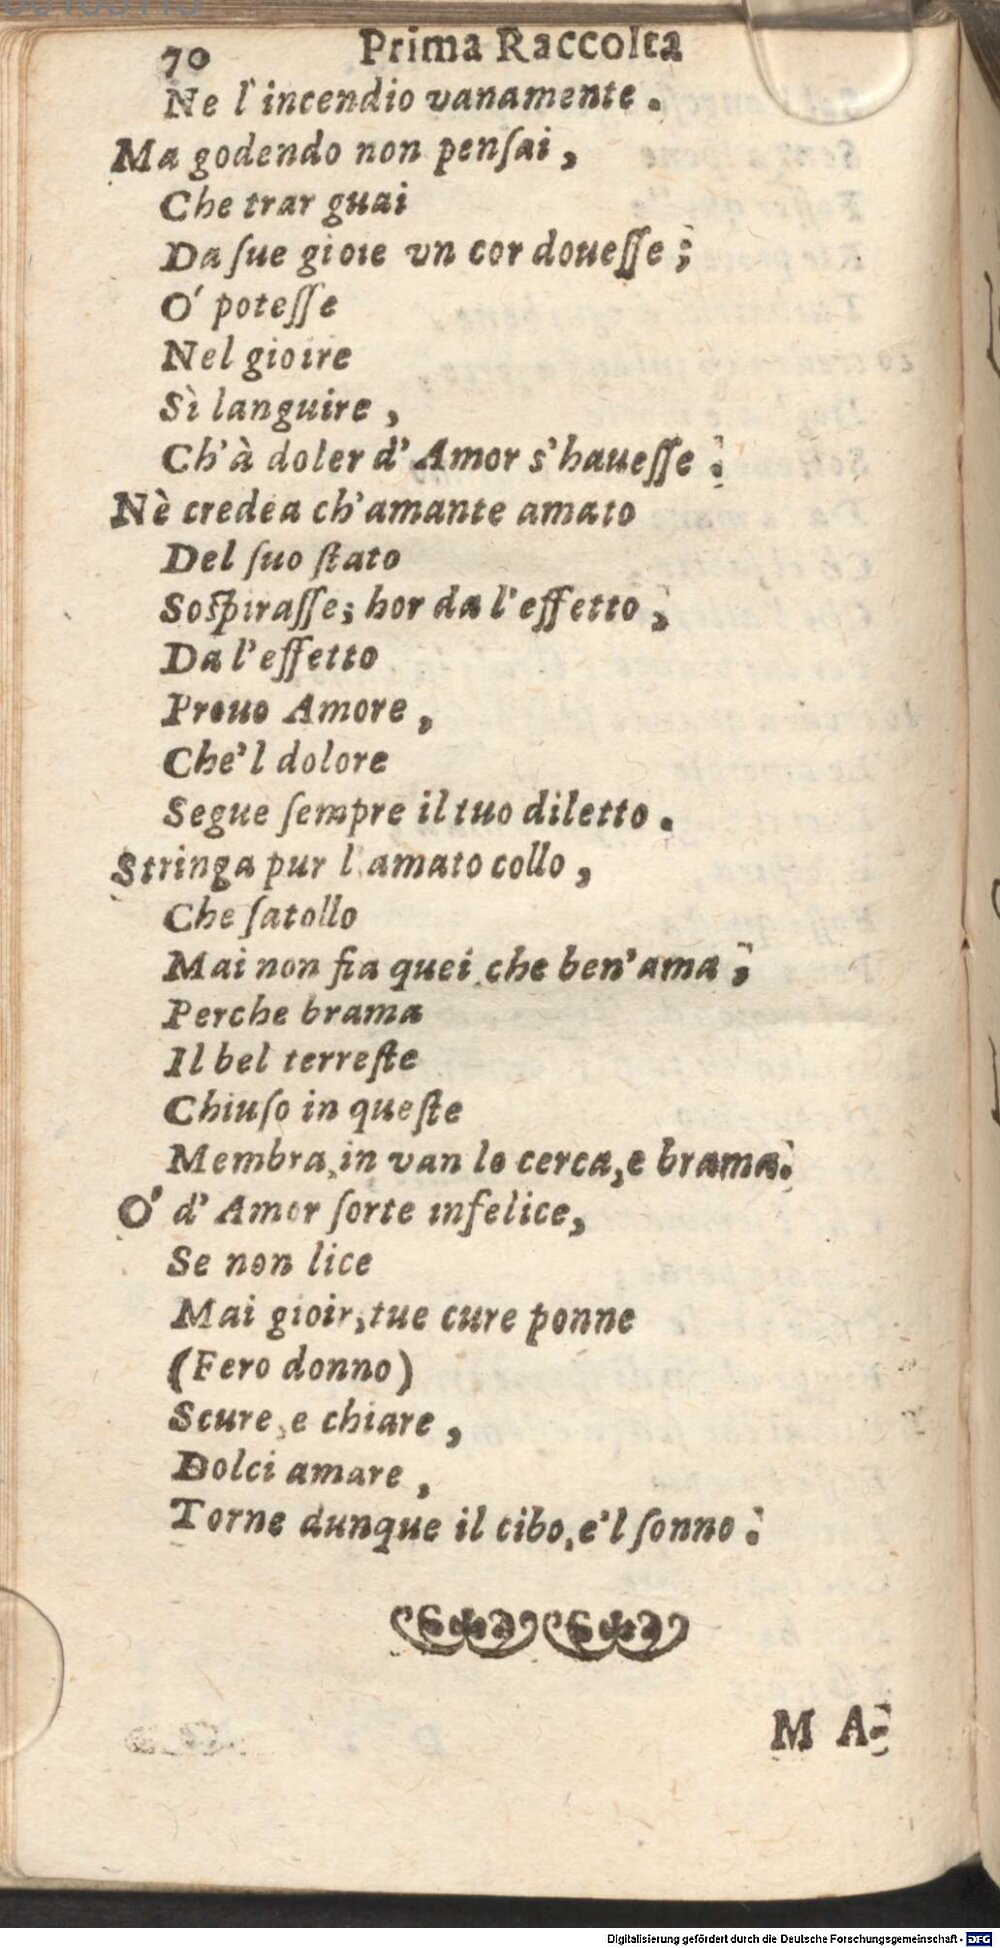 70 Prima Raccolta
Ne l'incendio vanamente.
Ma godendo non penſai,
Che trar guai
Da ſue gioie vn cor doueſſe;
O' poteſſe
Nel gioire
Sì languire,
Ch'à doler d' Amor s'haueſſe.
Nè credea ch'amante amato
Del ſuo ſtato
Soſpiraſſe; hor da l'effetto,
Da l'effetto
Prouo Amore,
Che'l dolore
Segue ſempre il tuo diletto.
Stringa pur l'amato collo,
Che ſatollo
Mai non fia quei che ben'ama;
Perche brama
Il bel terreſte
Chiuſo in queſte
Membra, in van lo cerca, e brama.
O' d' Amor ſorte infelice,
Se non lice
Mai gioir, tue cure ponne
(Fero donno)
Scure, e chiare,
Dolci amare,
Torne dunque il cibo, e'l ſonno.
M A-
Digitalisierung gefördert durch die Deutsche Forschungsgemeinschaft - DFG